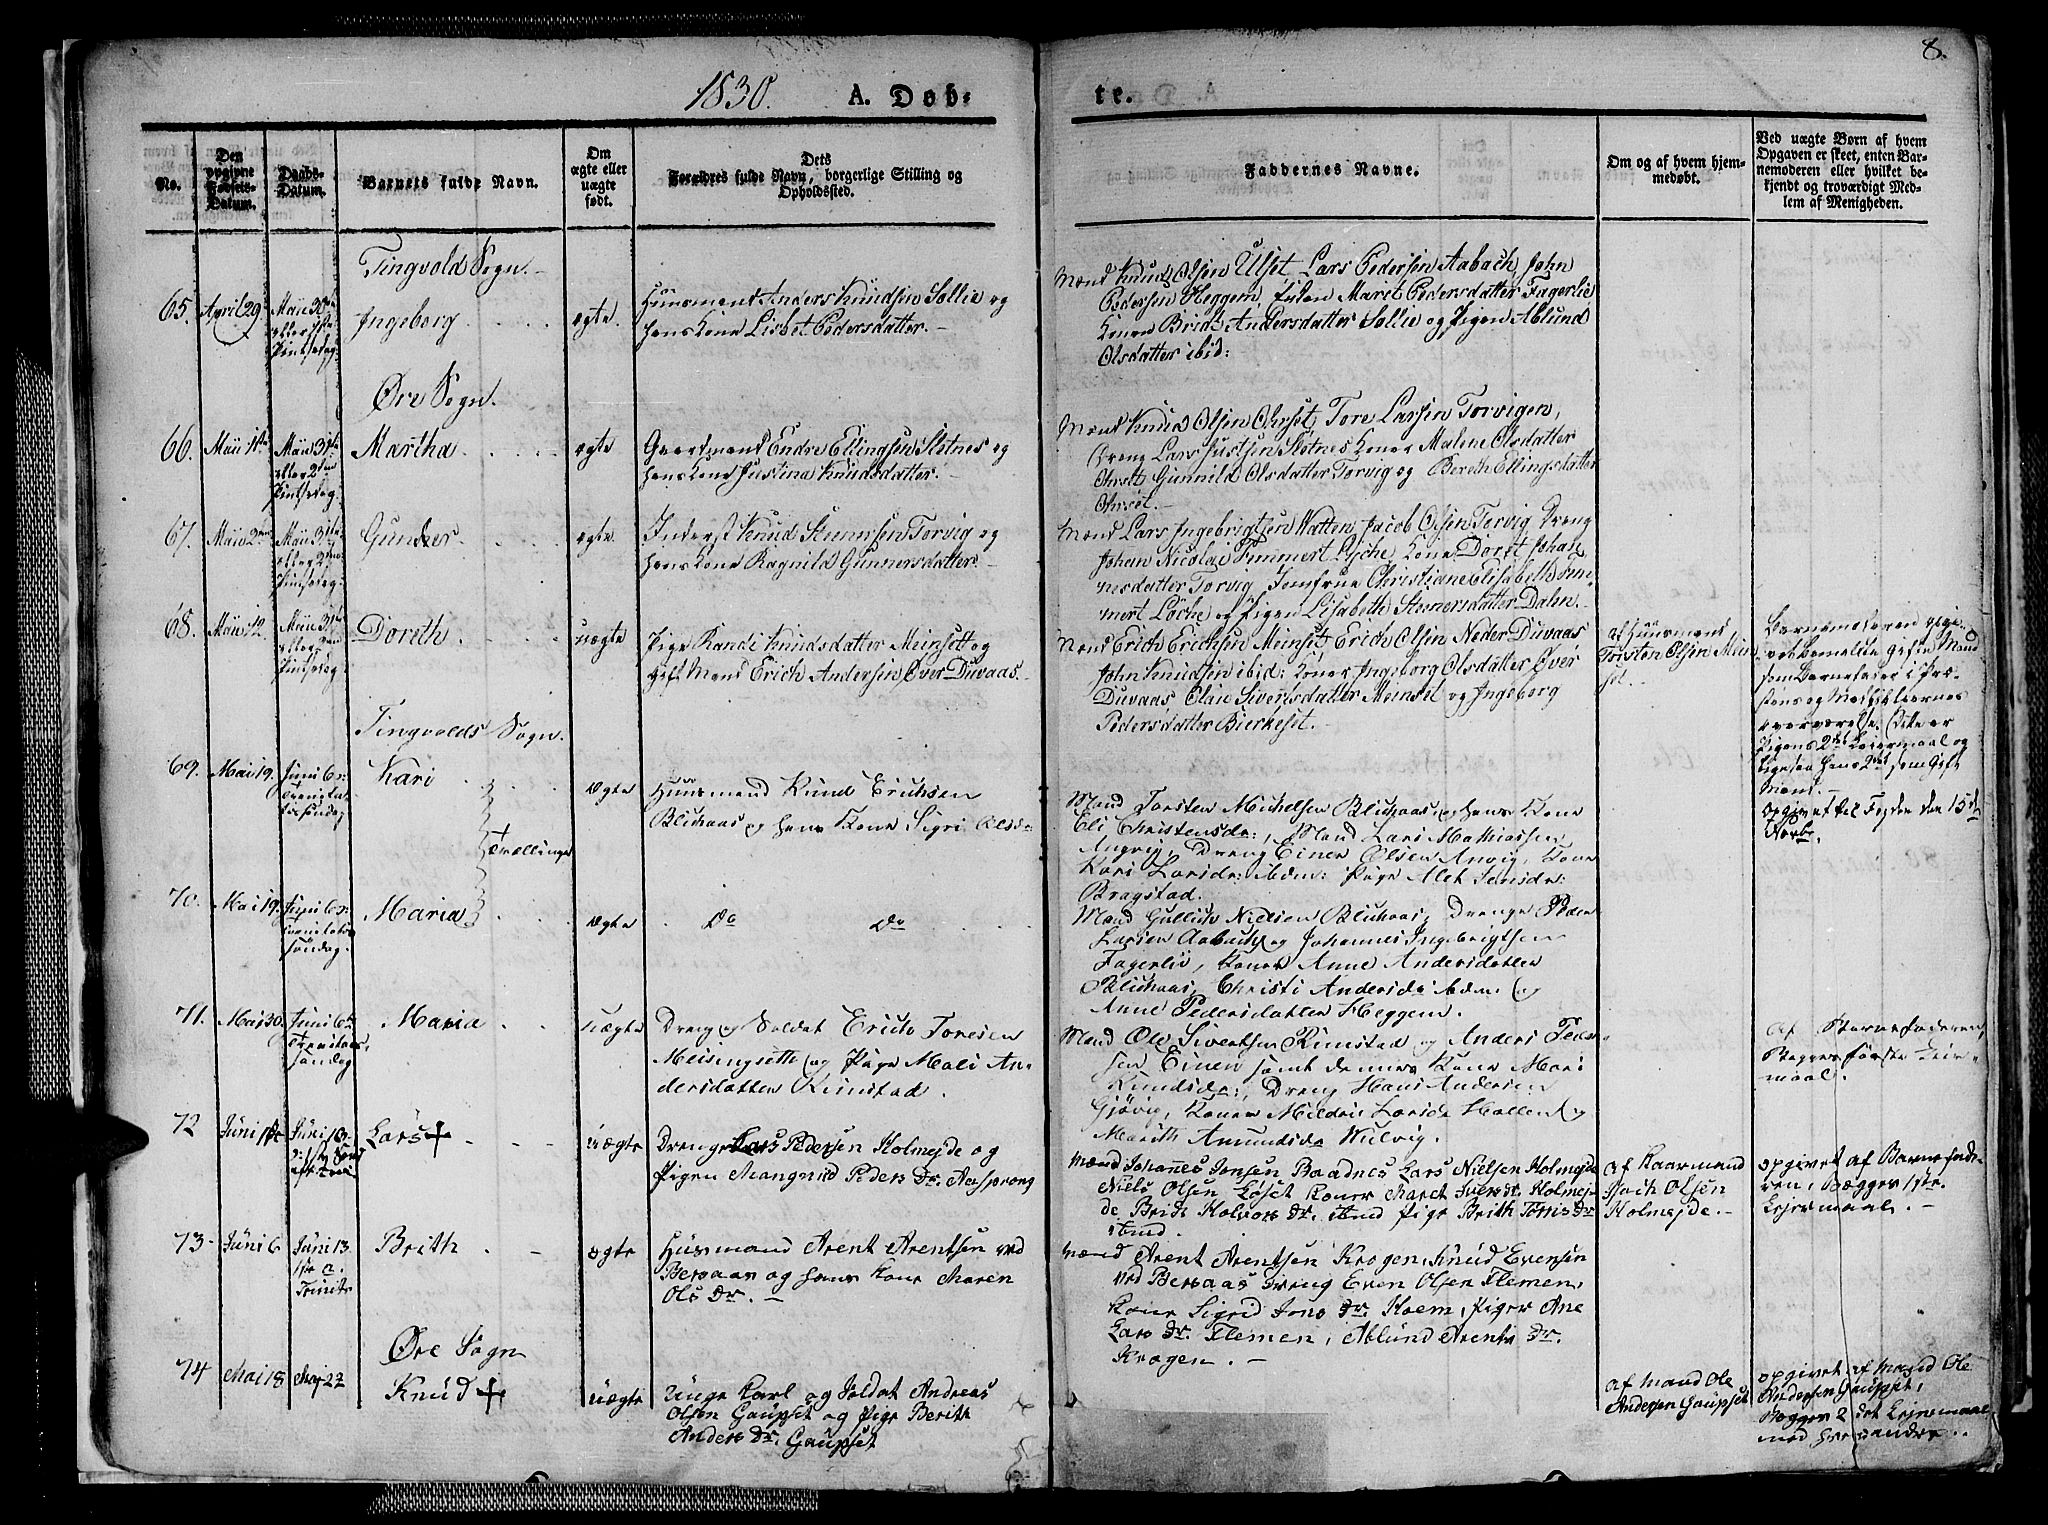 1830. A. Døb-
te. 8.
No.
Den opgivne Fødsels-Datum.
Daabs-Datum.
Barnets fulde Navn.
Om ægte eller uægte født.
Dets
Forældres fulde Navn, borgerlige Stilling og
Opholdssted.
Faddernes Navne.
Om og af hvem hjem-
medøbt.
Ved uægte Børn af hvem
Opgaven er skeet, enten Bar-
nemoderen eller hvilket be-
kjendt og troværdigt Med-
lem af Menigheden.
Tingvold Sogn.
65. April 29 Maii 30te eller 1ste Pintsedag: Ingeborg ægte.
Huusmand Anders Knudsen Sollie og
hans Kone Lisbet Pedersdatter.
Mænd Knud Olsen Ulset Lars Pedersen Aabach, John
Pedersen Heggem, Maret Pedersdatter Fagerlie
Konen Brit Andersdatter Sollie og Pigen Ablund
Olsdatter ibid:
Øre Sogn.
66. Maii 1ste Maii 31te eller 2den Pintsedag. Martha ægte
Gaardmand Endre Ellingsen Sletnes og
hans Kone Justina Knudsdatter.
Mænd Knud Olsen Ohrset, Tore Larsen Torvigen,
Dreng Lars Justsen Sletnes Koner Malene Olsdatter
Ohrset Gunnild Olsdatter Torvig og Bereth Ellingsdatter
Ohrset.
67. Maii 2den Maii 31te eller 2den Pintsedag: Gunder ægte.
Inderst Knud Steenersen Torvig og
hans Kone Ragnild Gunnersdatter.
Mænd Lars Ingebrigtsen Watten, Jacob Olsen Torvig Dreng
Johan Nicolai Emmert Lyche, Kone Doret Johan
nesdatter Torvig Jomfrue Christiane Elisabeth Em-
mert Löche og Pigen Lisabeth Steenersdatter Dahn.
68. Maii 12. Maii 31te eller 2den Pintsedag Doreth. uægte
Pige Randi Knudsdatter Meinsett og
Gift Mand Erich Andersen Øver Duvaas.
Mænd Erich Erichsen Meinset, Erich Olsen Neder Duvaas
John Knudsen ibid: Koner Ingeborg Olsdatter Øver
Duvaas, Olau Siversdatter Meinset og Ingeborg
Pedersdatter Bierkeset.
af Huusmand
Torsten Olsen Mein
set.
Barnemoderen opgi-
vet bemeldte gifte Mand
som Barnefader i Præ-
stens og Medhielpernes
overværelse. Dette er
Pigens 2det Leiermaal og
ligesaa hans 2det som Gift
Mand.
Opgivet til Fogden den 15de
Tingvolds Sogn.
69. Mai 19. Juni 6 Trenitatis Søndag Kari
Tvillinger
ægte Huusmand Knud Erichsen
Blikaas og hans Kone Sigri Olsd
Mænd Torsten Michelsen Blikaas, og hans Kone
Eli Christensdr:, Mand Lars Mathiassen
Angvig, Dreng Einer Olsen Anvig, Kone
Kari Larsdr: ibdm: Pige Alet Jensdr:
Bragstad.
70. Mai 19. Juni 6 Trenitatis söndag. Maria ægte Do Do
Mand Gullich Nielsen Blikaas, Drenge Peder
Larsen Aabach og Johannes Ingebrigtsen
Fagerlie, Koner Anne Andersdatter
Blikaas, Christi Andersdr ibdm: og
Anne Pedersdatter Heggem.
71. Mai 30. Juni 6te Trenitatis söndag Maria uægte
Dreng og Soldat Erich Toresen
Meisingseth og Pige Mali An-
dersdatter Rimstad.
Mænd Ole Sivertsen Rimstad og Anders Peder-
sen Einen samt dennes Kone Mari
Knudsdr:, Dreng Hans Andersen
Gjövig, Koner Mildri Larsdr Hallen og
Marith Amundsdr Hulvig.
af Barnefaderen,
Begges første Leier-
maal.
72 Juni 1ste Juni 13 Lars+ uægte
Drenge Lars Pedersen Holmejde og
Pigen Mangnild Peders Dr. Aasprong
Mænd Johannes Jonsen Baadnes Lars Nielsen Holmejde
Niels Olsen Løset Koner Maret Ivers Dr. Holmej-
de Brit Holvors Dr. ibid Pige Brith Torris Dr
ibid.
af Kaarmand
Isach Olsen
Holmejde.
opgivet af Barnefade-
ren, Begges 1ste
Lejermaal.
73 Juni 6 Juni 13 1ste n. Trinit: Brith ægte
Husmand Arent Arentsen ved
Bersaas og hans Kone Maren
Ols Dr.
Mænd Arent Arentsen Krogen, Knud Evensen
ved Bersaas Dreng Even Olsen Flemen,
Kone Sigrid Jons Dr. Hoem, Piger Ane
Lars Dr. Flemen, Ablund Arents Dr.
Krogen.
Øre Sogn
74 Mai 18 Maj 22 Knud+ uægte
Unge Karl og Soldat Andreas
Olsen Gaupset og Pige Berite
Anders Dr. Gaupset
af Mand Ole
Andersen Gaupset
opgivet af Mand Ole
Andersen Gaupset,
Begges 2det Lejermaal
med hverandre.